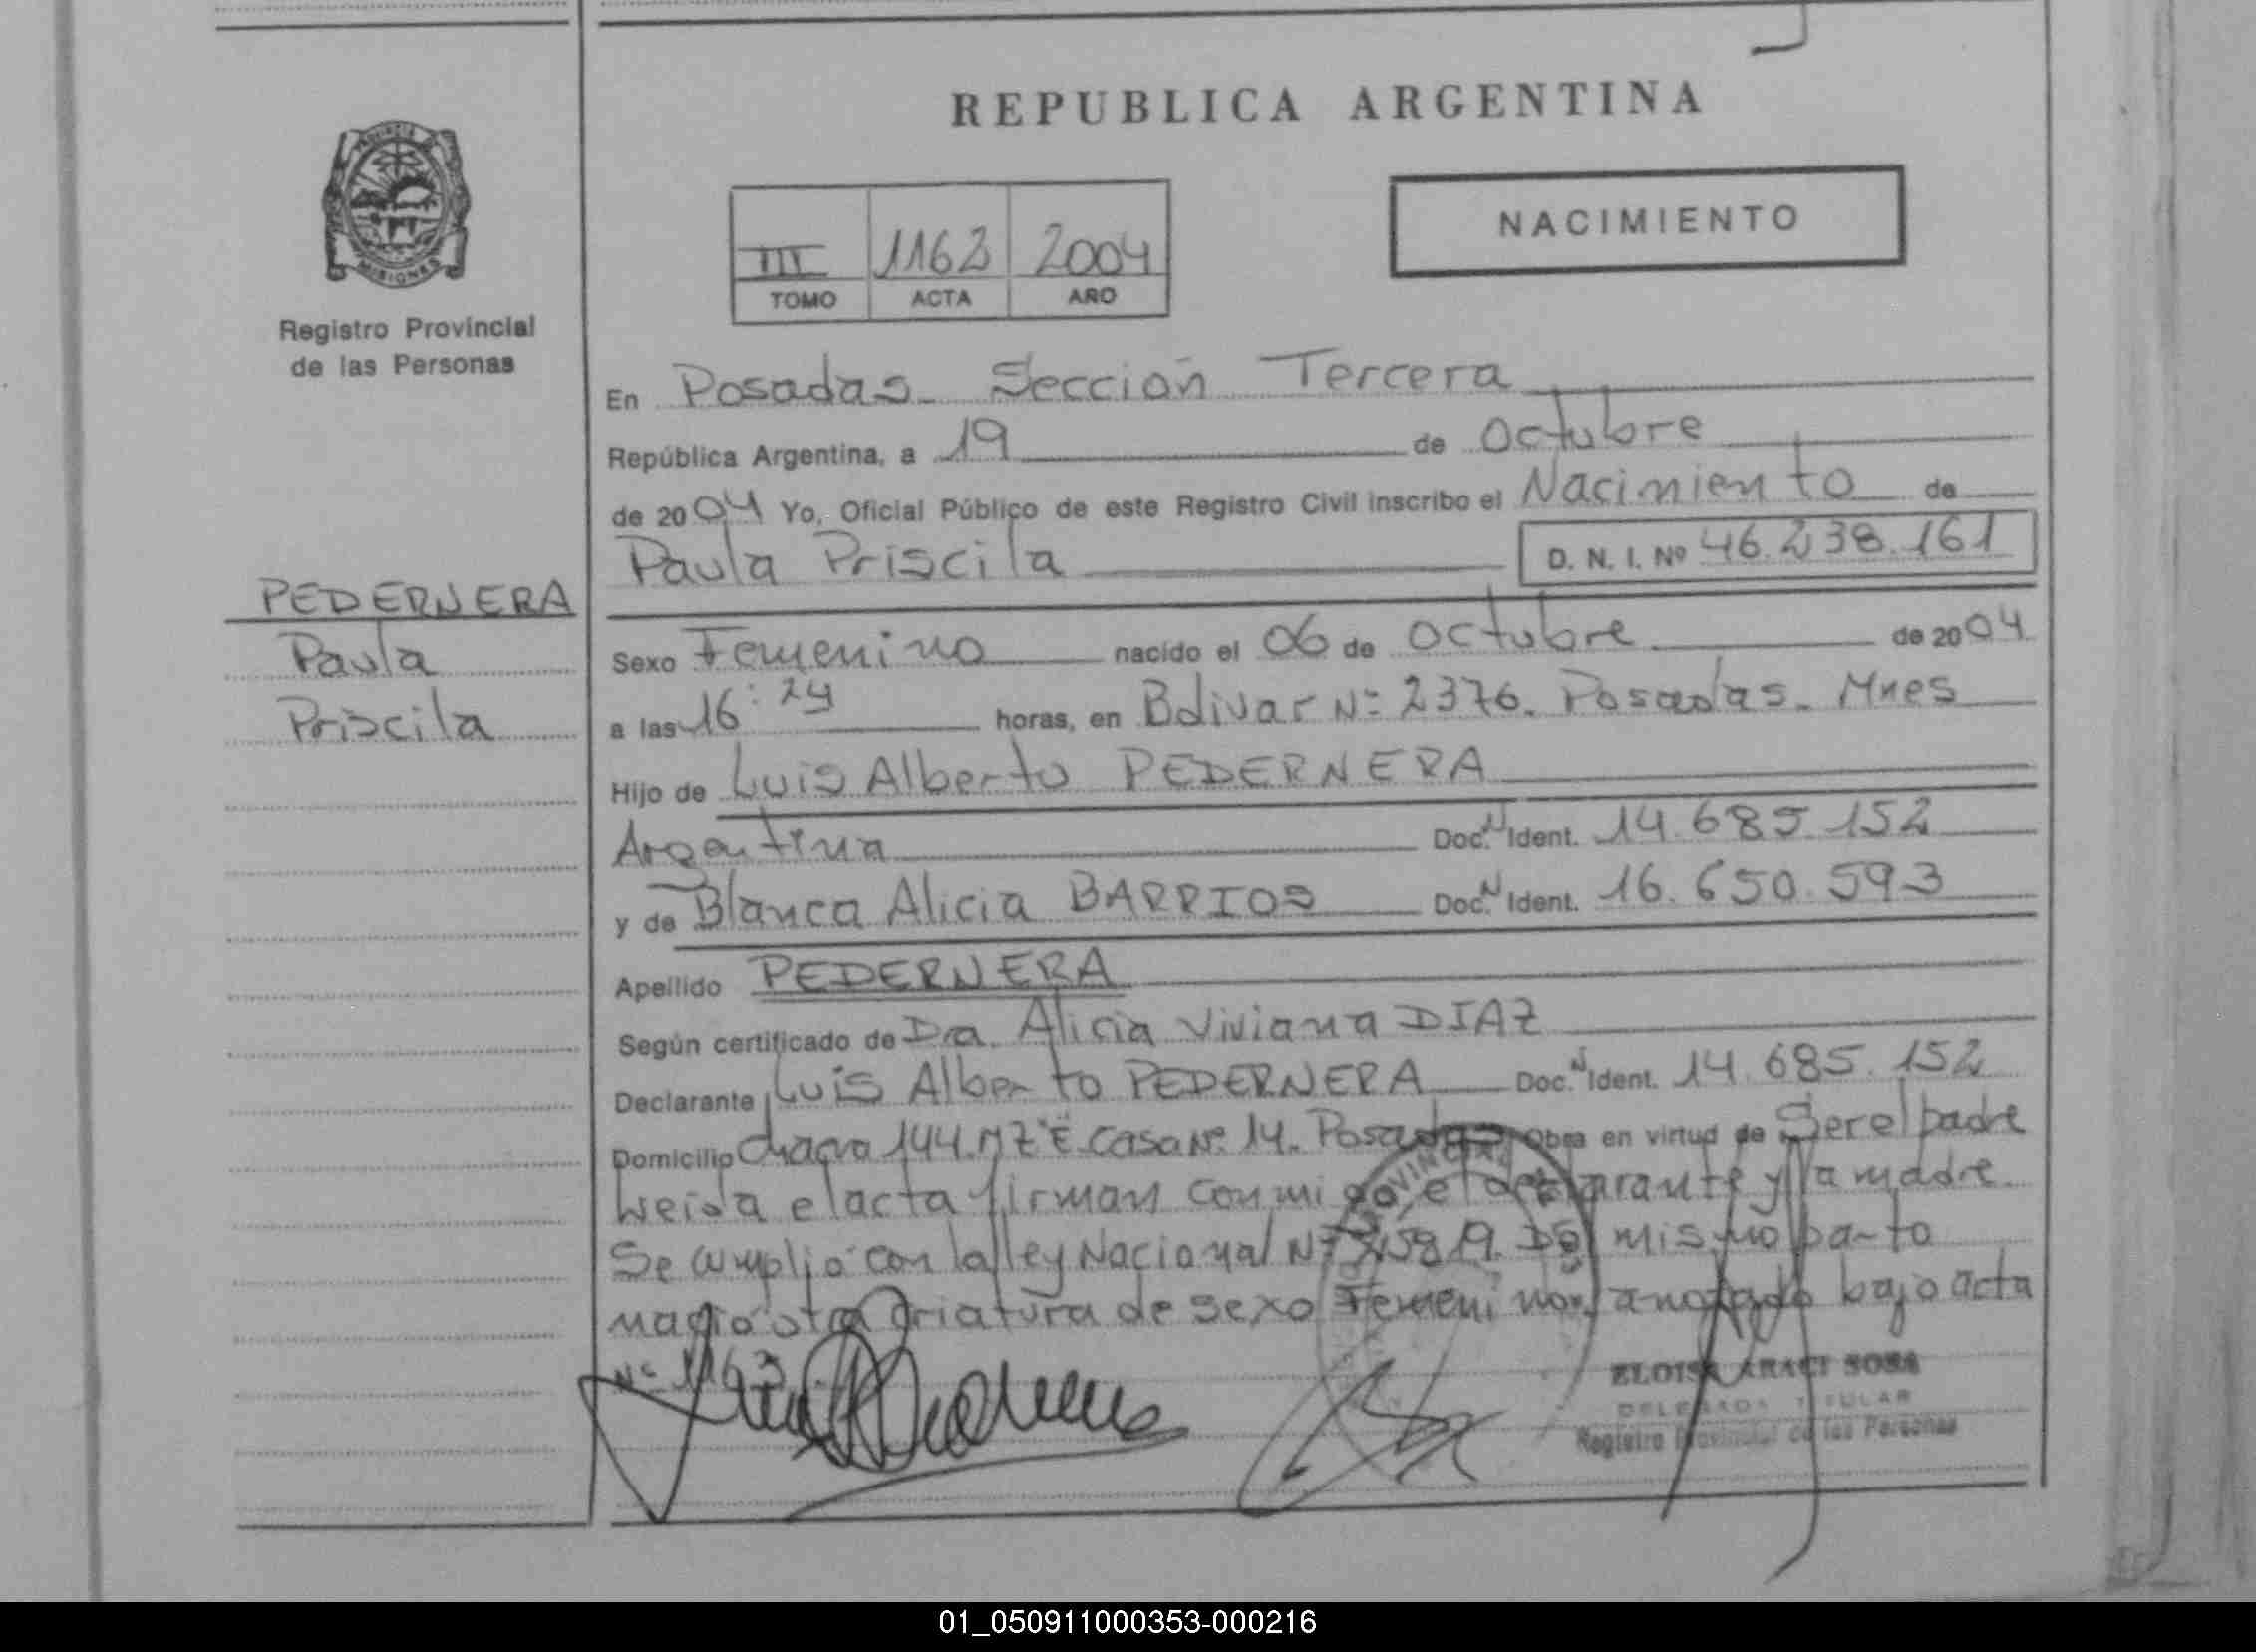 REPUBLICA ARGENTINA
MISIONES
Registro Provincial
de las Personas
III 1162 2004
TOMO ACTA AÑO
NACIMIENTO
En Posadas. Sección Tercera
República Argentina, a 19 de Octubre
de 2004 Yo, Oficial Público de este Registro Civil inscribo el Nacimiento de
Paula Priscila D. N. I. Nº 46.238.161
PEDERNERA
Paula
Priscila
Sexo Femenino nacido el 06 de Octubre de 2004
a las 16:24 horas, en Bolivar Nº 2376. Posadas. Mnes
Hijo de Luis Alberto PEDERNERA
Argentina Doc. N Ident. 14.685.152
y de Blanca Alicia BARRIOS Doc. N Ident. 16.650.593
Apellido PEDERNERA
Según certificado de Dra. Alicia Viviana DIAZ
Declarante Luis Alberto PEDERNERA Doc. N Ident. 14.685.152
Domicilio Chacra 144. MZ "E" Casa Nº 14. Posadas Obra en virtud de Ser el padre
Leida el acta firman conmigo, el declarante y la madre.
Se cumplió con la ley Nacional Nº 24581/9. Del mismo parto
nació otra criatura de sexo Femenino, anotado bajo acta
Nº 1163.
ELOISA ARACI SOSA
DELEGADA TITULAR
Registro Provincial de las Personas
01_050911000353-000216